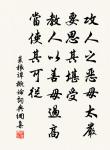 攻人之惡毋太嚴
要思其堪受
教人以善毋過高
當使其可從
菜根譚概論詞典網